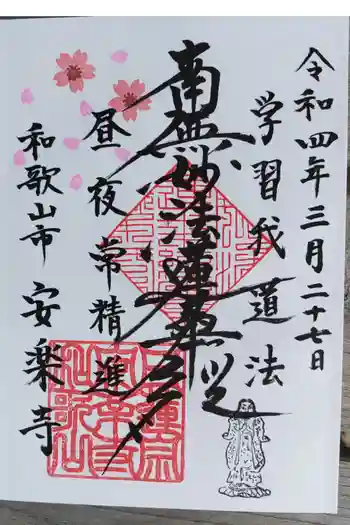 令和四年三月二十七日
学習我道法
南無妙法蓮華経
昼夜常精進
和歌山市 安楽寺